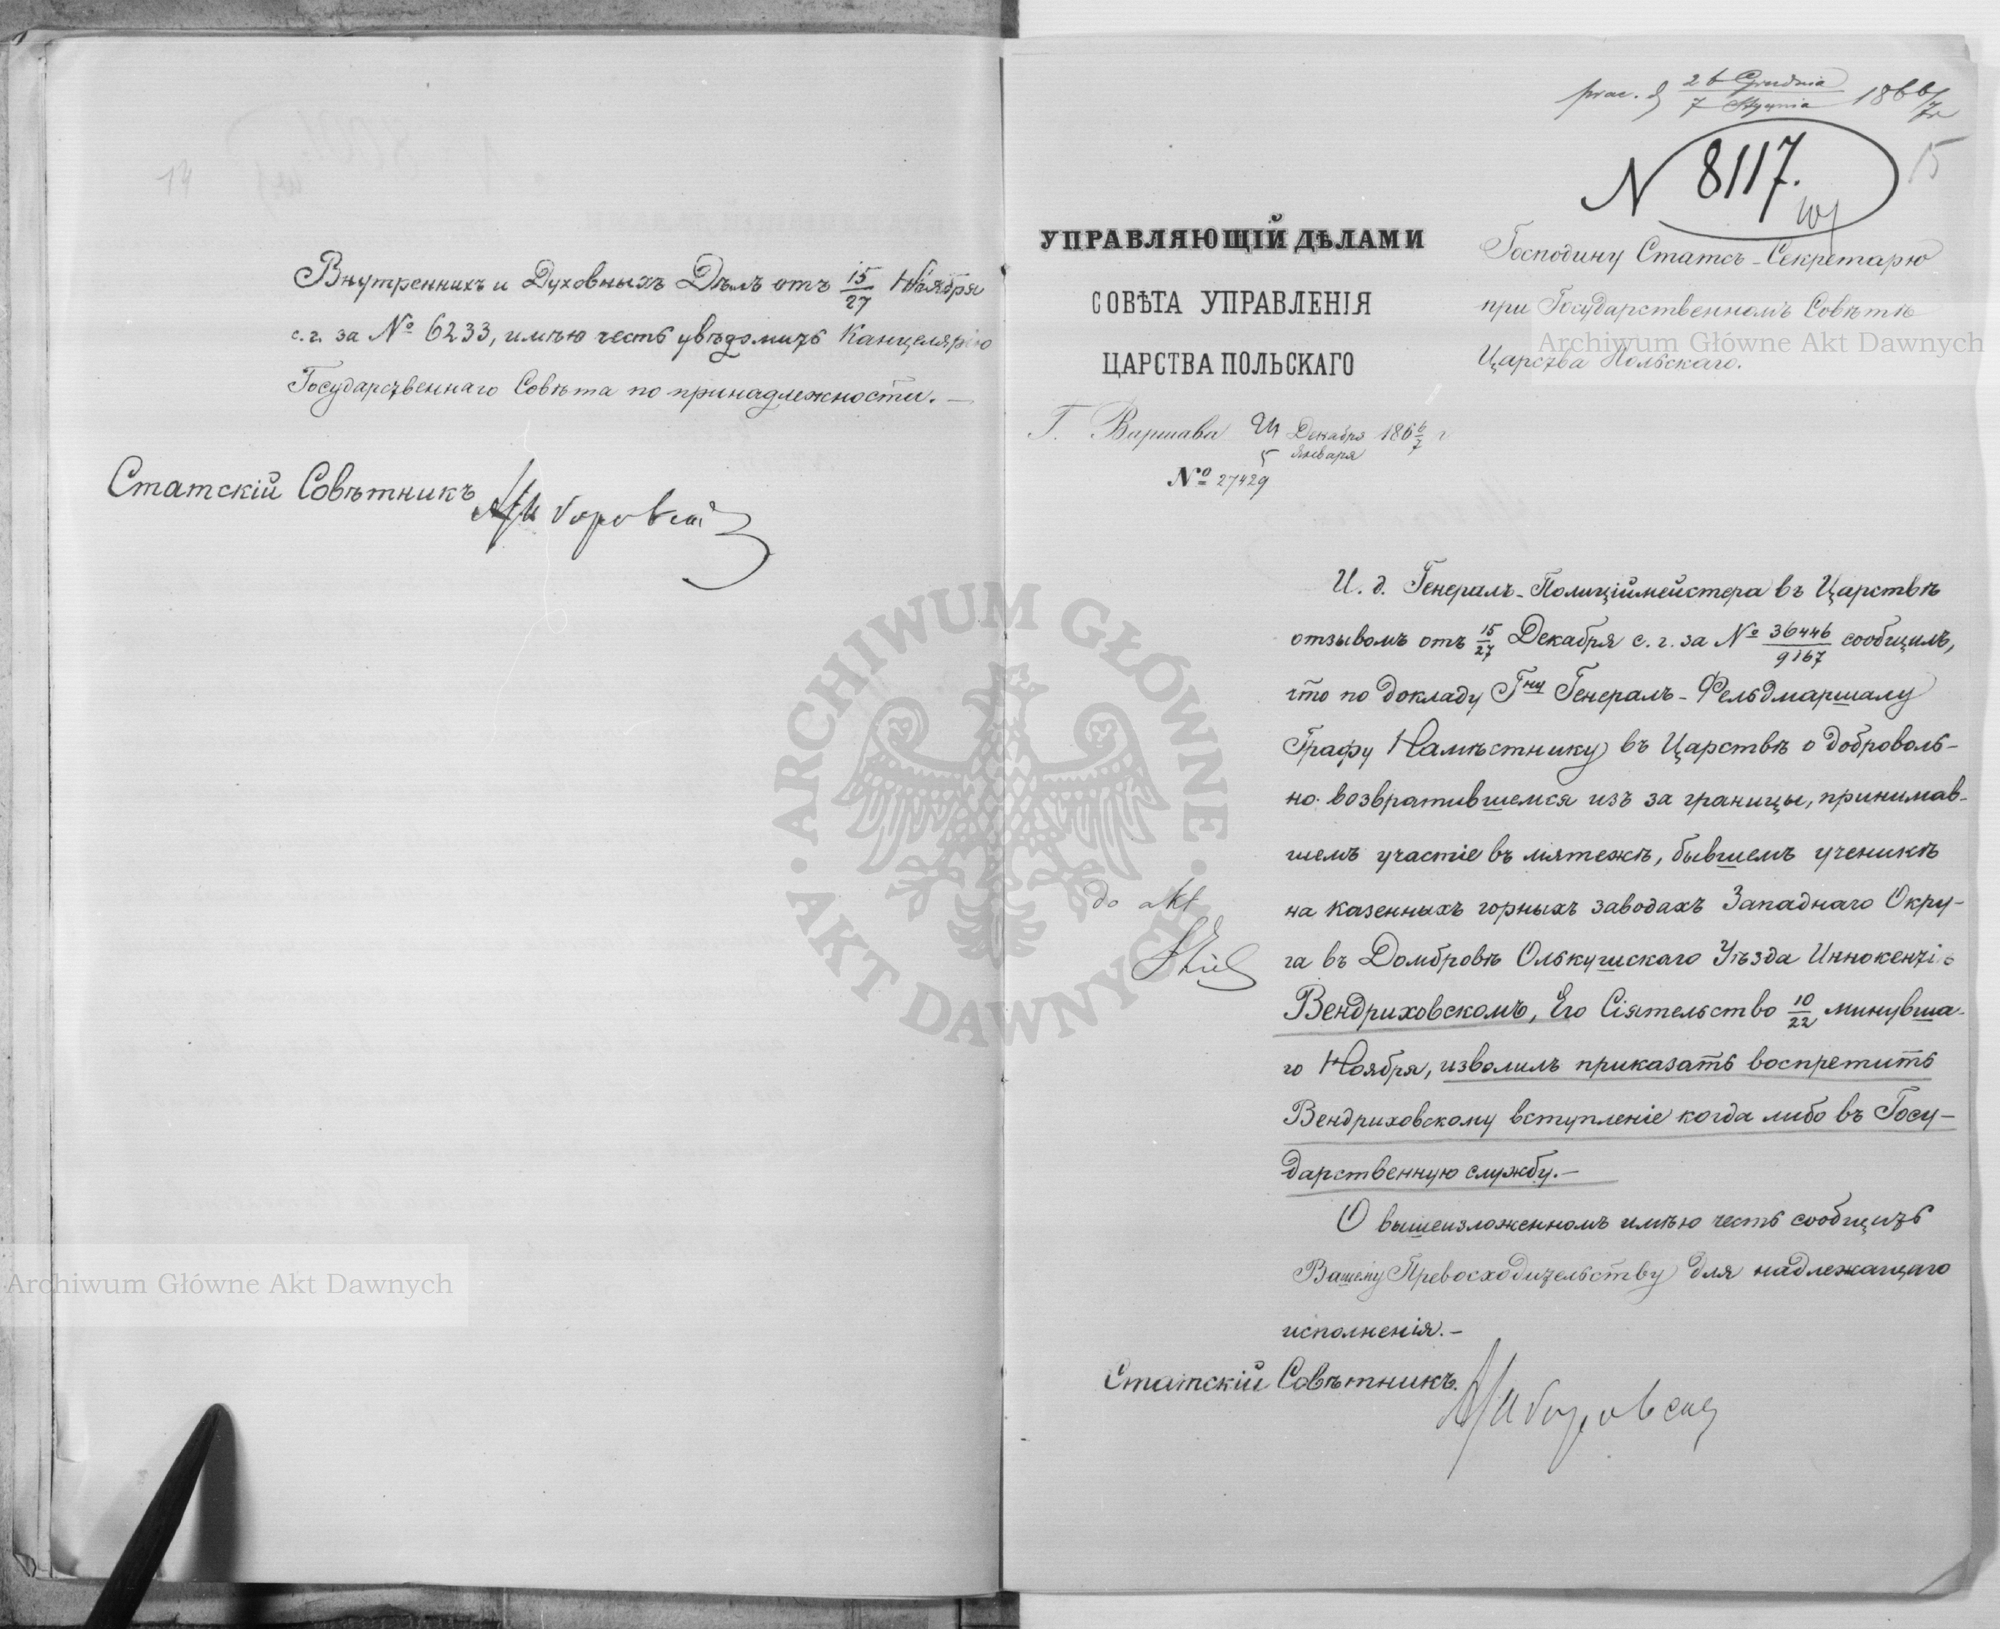 14
Внутреннихъ и Духовныхъ Дѣлъ отъ 15/27 Ноября
с. г. за № 6233, имѣю честь увѣдомить Канцелярію
Государственнаго Совѣта по принадлежности. —
Статскій Совѣтникъ
26 Grudnia
7 Stycznia 1866/7
N 8117.
15
УПРАВЛЯЮЩІЙ ДѢЛАМИ
СОВѢТА УПРАВЛЕНІЯ
ЦАРСТВА ПОЛЬСКАГО
Г. Варшава 24 Декабря 1866/7 г
5 Января
№ 27429
Господину Статсъ-Секретарю
при Государственномъ Совѣтѣ
Царства Польскаго.
И. д. Генералъ-Полиціймейстера въ Царствѣ
отзывомъ отъ 15/27 Декабря с. г. за № 36446/9167 сообщилъ,
что по докладу Гну Генералъ-Фельдмаршалу
Графу Намѣстнику въ Царствѣ о доброволь-
но возвратившемся изъ за границы, принимав-
шемъ участіе въ мятежѣ, бывшемъ ученикѣ
на казенныхъ горныхъ заводахъ Западнаго Окру-
га въ Домбровѣ Олькушскаго Уѣзда Иннокентіѣ
Вендриховскомъ, Его Сіятельство 10/22 минувша-
го Ноября, изволилъ приказать воспретить
Вендриховскому вступленіе когда либо въ Госу-
дарственную службу. —
О вышеизложенномъ имѣю честь сообщить
Вашему Превосходительству для надлежащаго
исполненія. —
Статскій Совѣтникъ
do akt
Archiwum Główne Akt Dawnych
Archiwum Główne Akt Dawnych
ARCHIWUM GŁÓWNE · AKT DAWNYCH ·